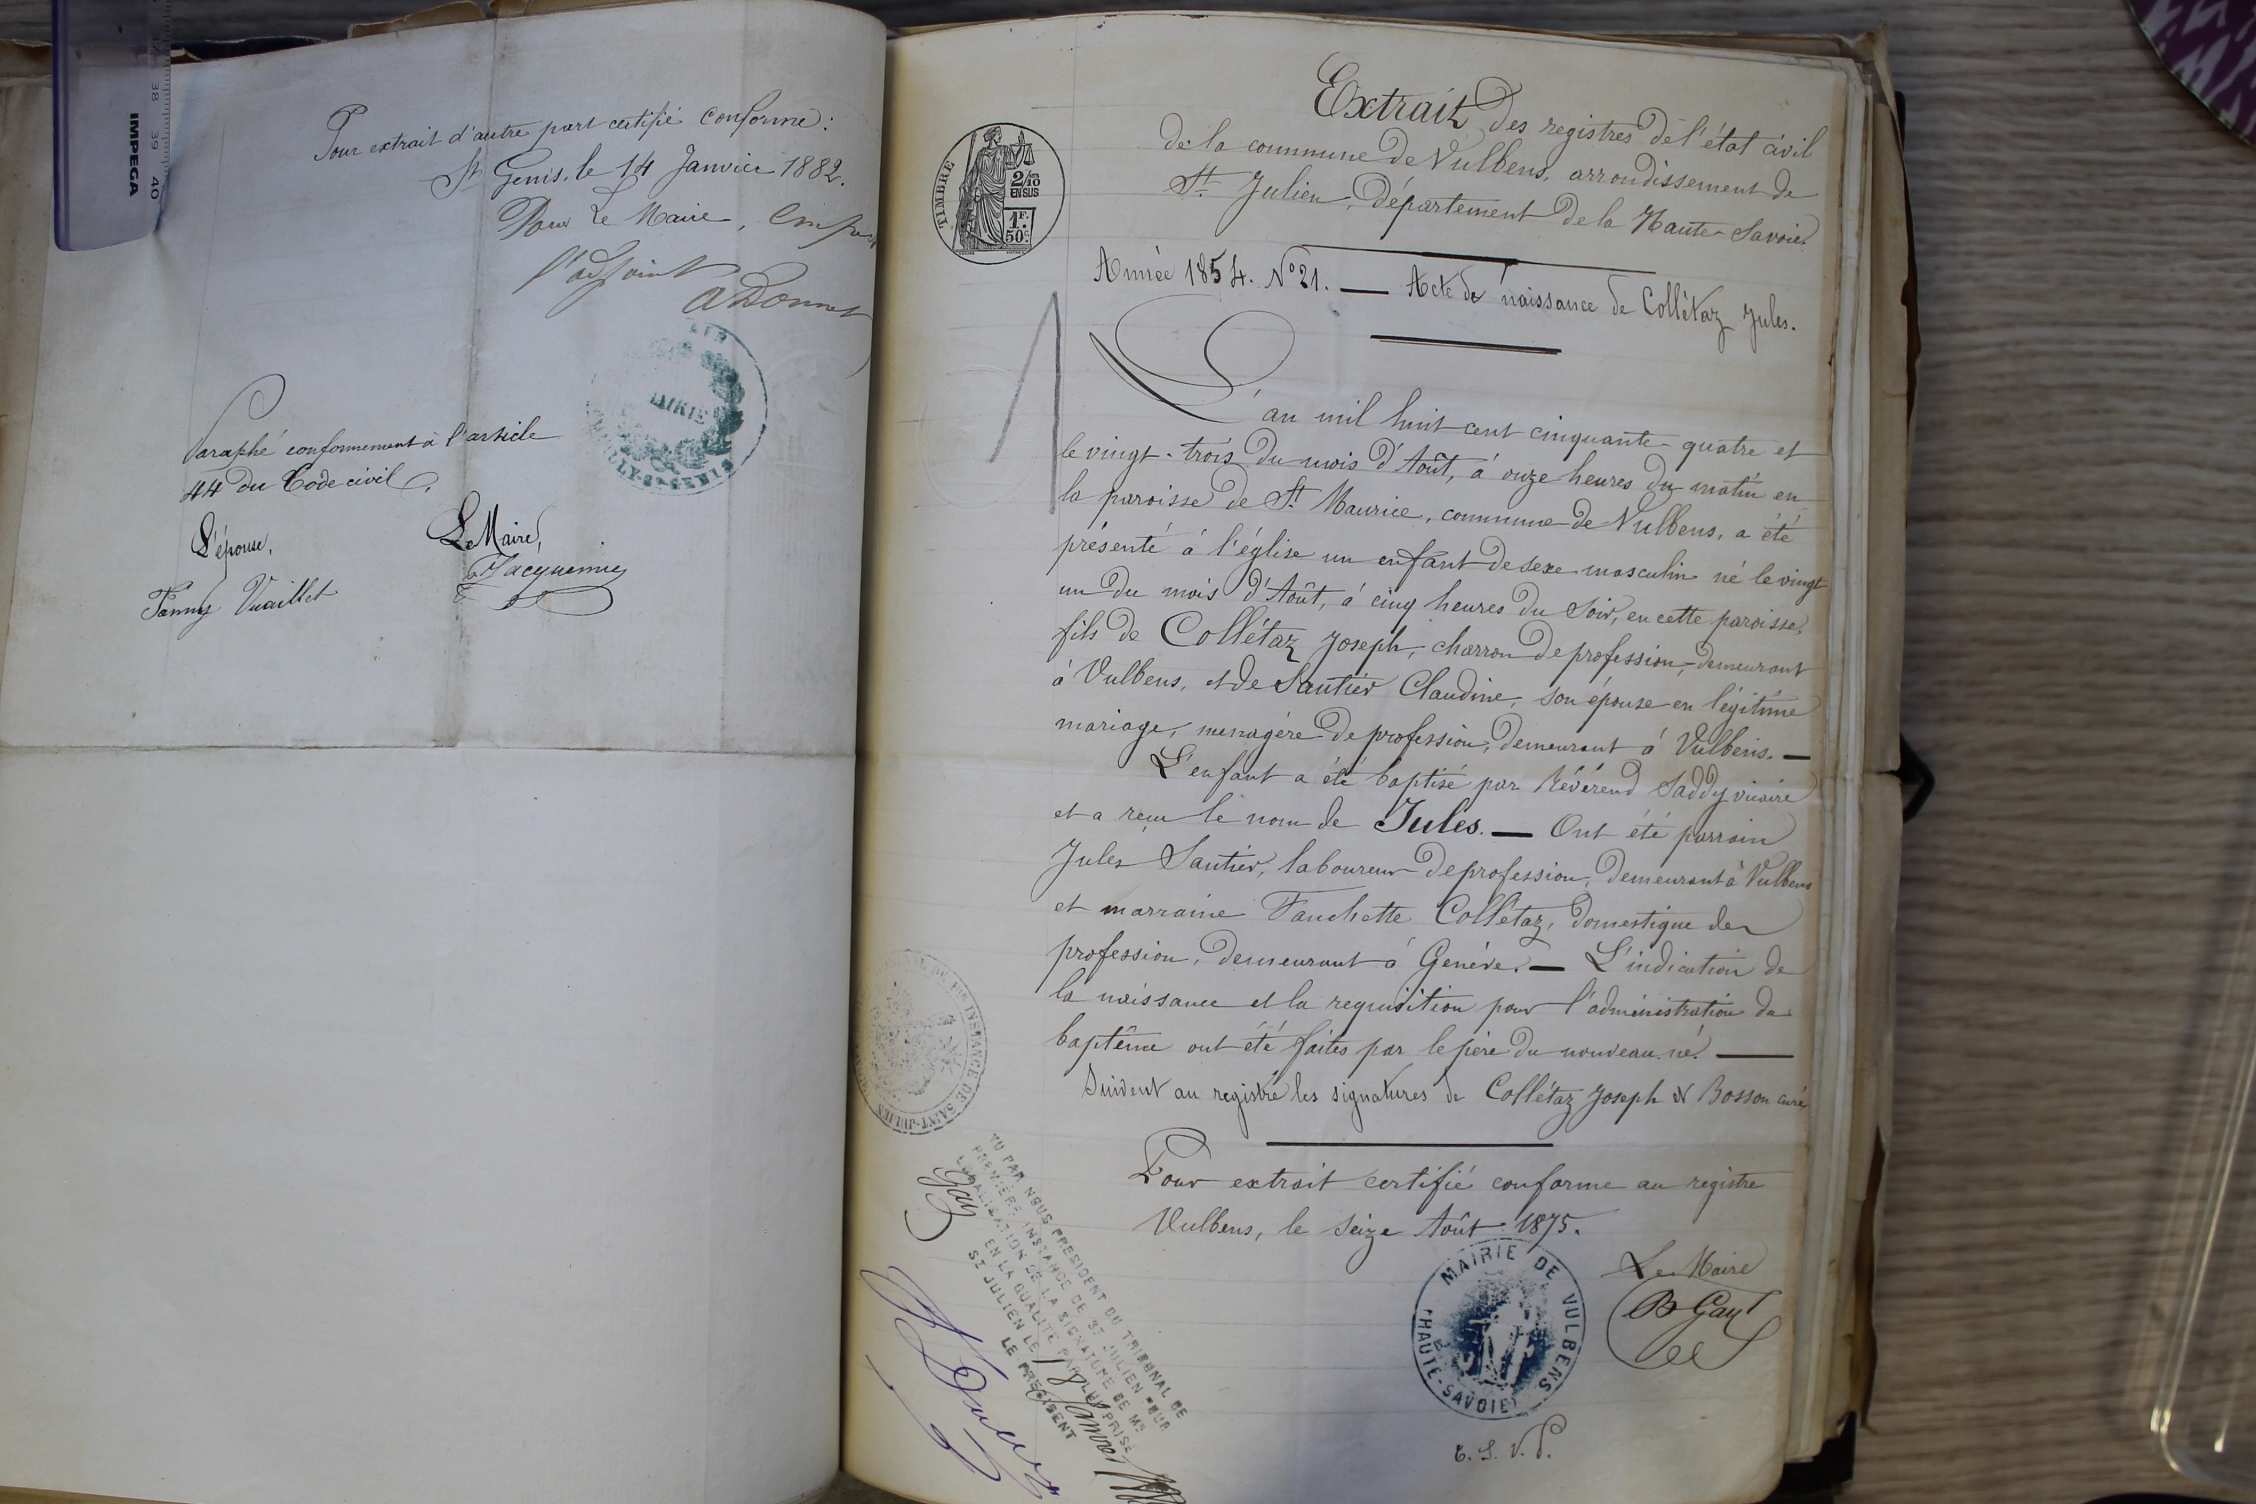 38 39 40
IMPEGA
Pour extrait d'autre part certifié conforme:
St Genis, le 14 Janvier 1882.
Pour Le Maire,
l'adjoint
MAIRIE
Paraphé conformement à l'article
44 du Code civil.
L'épouse, Le Maire,
Fanny Vuaillet Jacquemier
TIMBRE
2/10
EN SUS
1F.
50c
Extrait des registres de l'état civil
de la commune de Vulbens, arrondissement de
St Julien, département de la Haute-Savoie.
Année 1854. No 21. — Acte de naissance de Collétaz Jules.
L'an mil huit cent cinquante-quatre et
le vingt-trois du mois d'Août, à onze heures du matin en
la paroisse de St Maurice, commune de Vulbens, a été
présenté à l'église un enfant de sexe masculin né le vingt
un du mois d'Août, à cinq heures du soir, en cette paroisse,
fils de Collétaz Joseph, charron de profession, demeurant
à Vulbens, et de Sautier Claudine, son épouse en légitime
mariage, menagère de profession, demeurant à Vulbens. —
L'enfant a été baptisé par Révérend Saddy vicaire
et a reçu le nom de Jules. — Ont été parrain
Jules Sautier, laboureur de profession, demeurant à Vulbens
et marraine Fanchette Collétaz, domestique de
profession, demeurant à Genève. — L'indication de
la naissance et la requisition pour l'administration du
baptême ont été faites par le père du nouveau-né. —
Suivent au registre les signatures de Collétaz Joseph et Bosson curé
Pour extrait certifié conforme au registre
Vulbens, le seize Août 1875.
Le Maire
B Gay
MAIRIE DE VULBENS
(HAUTE-SAVOIE)
T. S. V. P.
INSTANCE DE SAINT-JULIEN
VU PAR NOUS PRESIDENT DU TRIBUNAL DE
PREMIERE INSTANCE DE ST JULIEN POUR
LEGALISATION DE LA SIGNATURE DE Mr
Gay
EN LA QUALITE PAR LUI PRISE
ST JULIEN LE 18
LE PRESIDENT